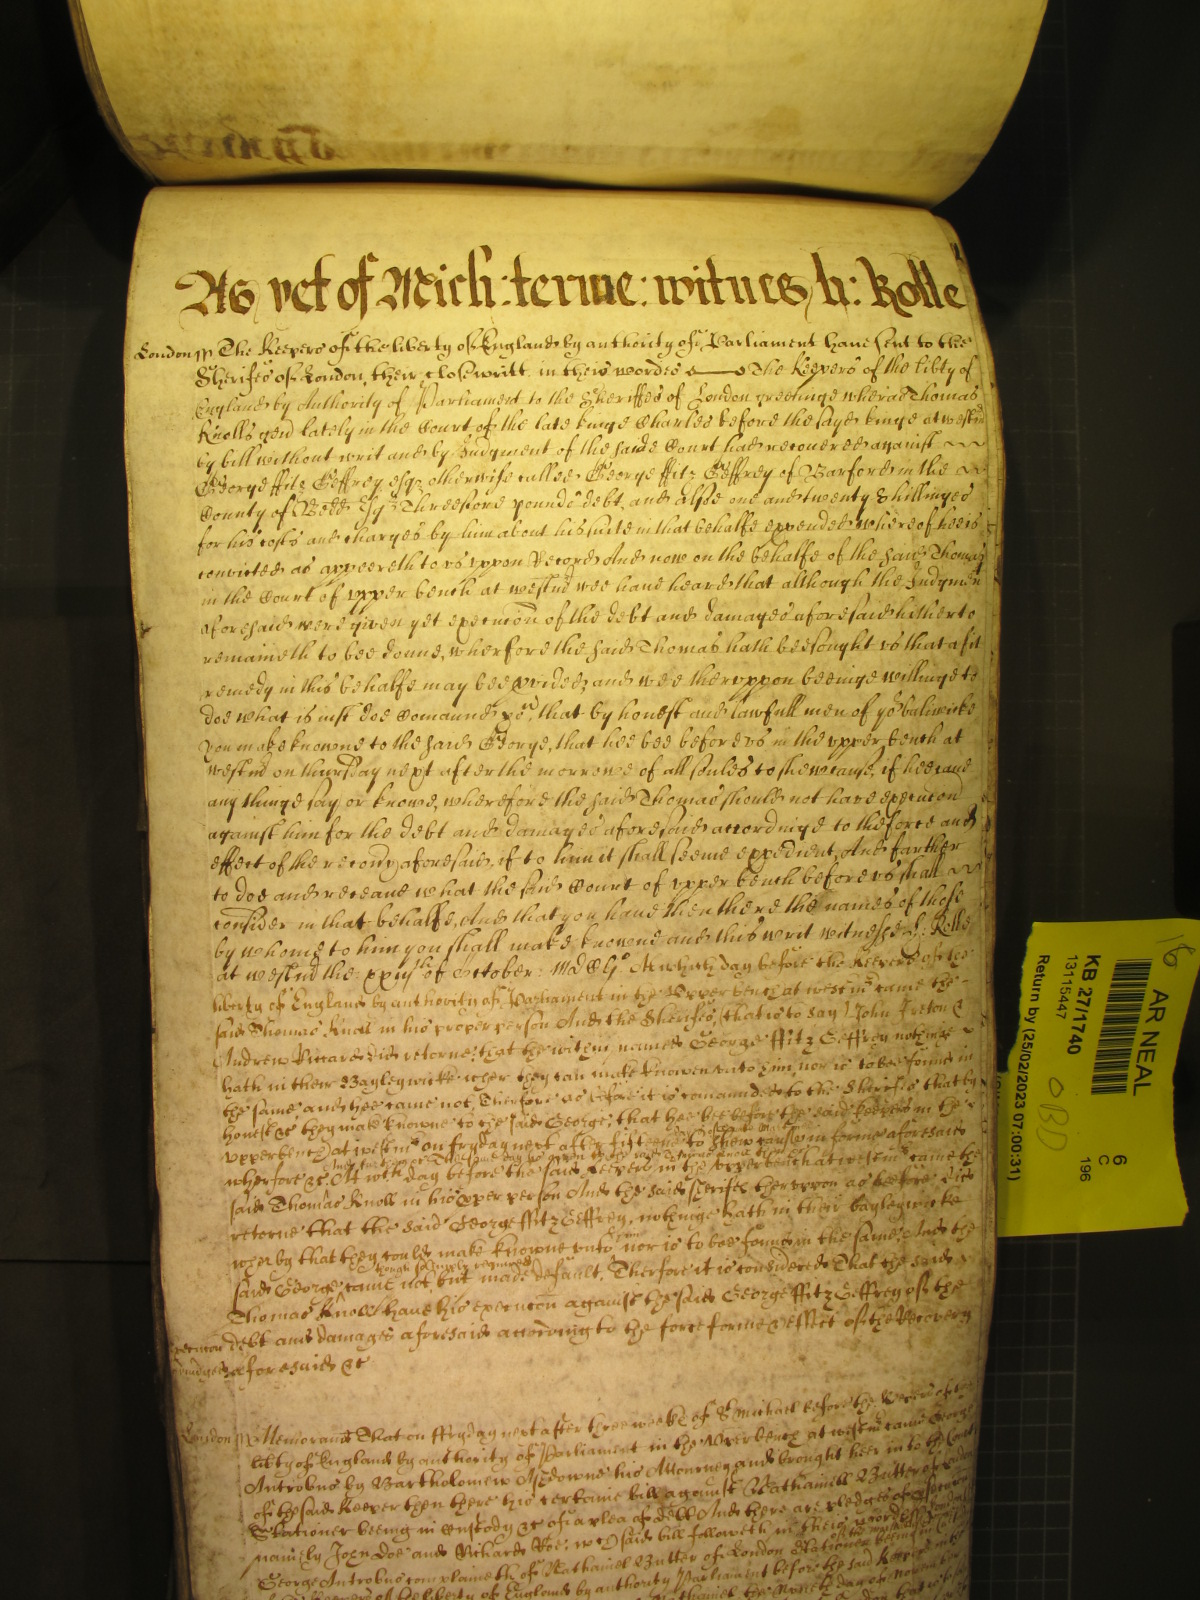 As yet of Mich: terme: witnes h: Rolle
London ss The Keepers of the liberty of England by authority of Parliament have sent to the
Sherifes of London, their close writt, in theis wordes The Keepers of the libty of
England by Authority of Parliament to the Sheriffes of London greetinge wheras Thomas
Knolls gend lately in the Court of the late kinge Charles before the same kinge at westm
by bill without writ and by Judgment of the same Court had recovered against
George ffitz Geffrey esqr otherwise called George ffitz Geffrey of Barford in the
County of Bedd Esqr Threescore pounds debt, and alsoe one and twenty Shillinges
for his costs and charges by him about his suite in that behalfe expended whereof hee is
convicted as appeereth to us uppon Record And now on the behalfe of the said Thomas
in the Court of upper bench at westm wee have heard that although the Judgment
aforesaid were given yet execucon of the debt and damages aforesaid hitherto
remaineth to bee donne, wherfore the said Thomas hath besought us that a fit
remedy in this behalfe may bee pvided, and wee theruppon beeinge willinge to
doe what is iust doe Comaund you, that by honest and lawfull men of yor baliwicke
you make knowne to the said George, that hee bee before us in the upper bench at
westm on thursday next after the morrowe of all soules to shew cause, if hee cane
any thinge say or knowe, wherefore the said Thomas should not have execucon
against him for the debt and damages aforesaid accordinge to the force and
effect of the recovery aforesaid, if to him it shall seeme expedient, And farther
to doe and receave what the said Court of upper bench before us shall
consider in that behalfe, And that you have then there the names of those
by whome to him you shall make knowne and this writ witnesse h: Rolle
at westm the xxiijth of October: MDCL At which day before the Keepers of the
liberty of England by authority of Parliament in the Upper bench at westm came the
said Thomas Knoll in his proper person And the Sherifes, that is to say John &
Andrew Riccard did retorne that the within named George ffitz Geffrey nothinge
hath in their Bayleywicke wher they can make knowen unto him, nor is to bee found in
the same and hee came not, Therfore as before it is comaunded to the Sherifes that by
honest &c they make knowne to the said George, that hee bee before the said keepers in the
upper bench at westm on fryday next after fifteene to shew cause in forme aforesaid
wherfore &c At wch day before the said keepers in the upper bench at westm came the
said Thomas Knoll in his pper person And the said Sherifes theruppon as before did
retorne that the said George ffitz Geffrey, nothinge hath in their bayleywicke
wherby that they could make knowne unto him nor is to bee found in the same, And the
said George though solemnly required came not, but made default, Therfore it is considered That the said
Thomas Knoll have his execucon against the said George ffitz Geffrey of the
debt and damages aforesaid according to the force forme & effect of the Recovery
aforesaid &c
London ss Memorand That on ffryday next after three weekes of St Michael before the Keepers of the
libty of England by authority of Parliament in the Upper bench at westm came George
Antrobus by Bartholomew his Attourney and brought heer into the Court
of the said Keepers then there his certaine bill against Nathaniell Butter of London
Stationer beeing in custody &c of a plea of debt And there are pledges of
namely John Doe and Richard Roe: wch said bill followeth in theis wordes
George Antrobus complaineth of Nathaniel Butter of London Stationer
of the liberty of England by authority Parliament before the said Keepers
AR NEAL
KB 27/1740
13115447
Return by (25/02/2023 07:00:31)
6
C
196